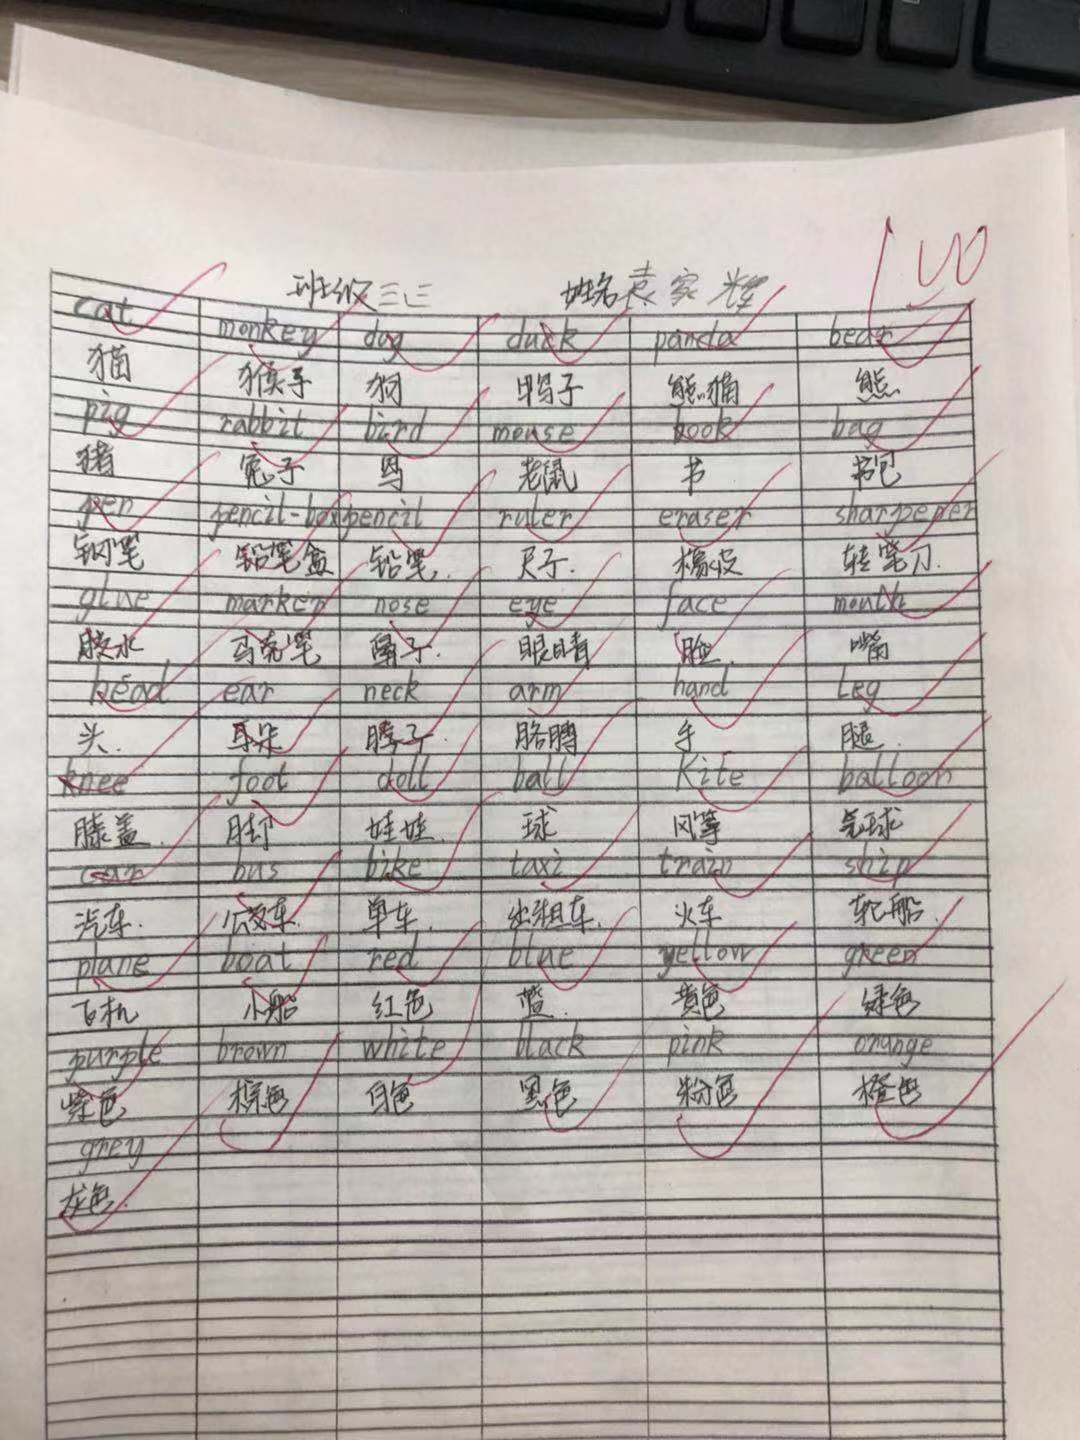 班级三三 姓名袁家辉
100
cat monkey dog duck panda bear
猫 猴子 狗 鸭子 熊猫 熊
pig rabbit bird mouse book bag
猪 兔子 鸟 老鼠 书 书包
pen pencil-box pencil ruler eraser sharpener
钢笔 铅笔盒 铅笔. 尺子. 橡皮 转笔刀
glue marker nose eye face mouth
胶水 马克笔 鼻子. 眼睛 脸. 嘴
head ear neck arm hand leg
头. 耳朵 脖子. 胳膊 手 腿.
knee foot doll ball kite balloon
膝盖. 脚 娃娃. 球 风筝 气球
car bus bike taxi train ship
汽车. 公交车. 单车. 出租车. 火车 轮船.
plane boat red blue yellow green
飞机 小船 红色 蓝. 黄色 绿色
purple brown white black pink orange
紫色 棕色 白色 黑色 粉色 橙色
grey
灰色.